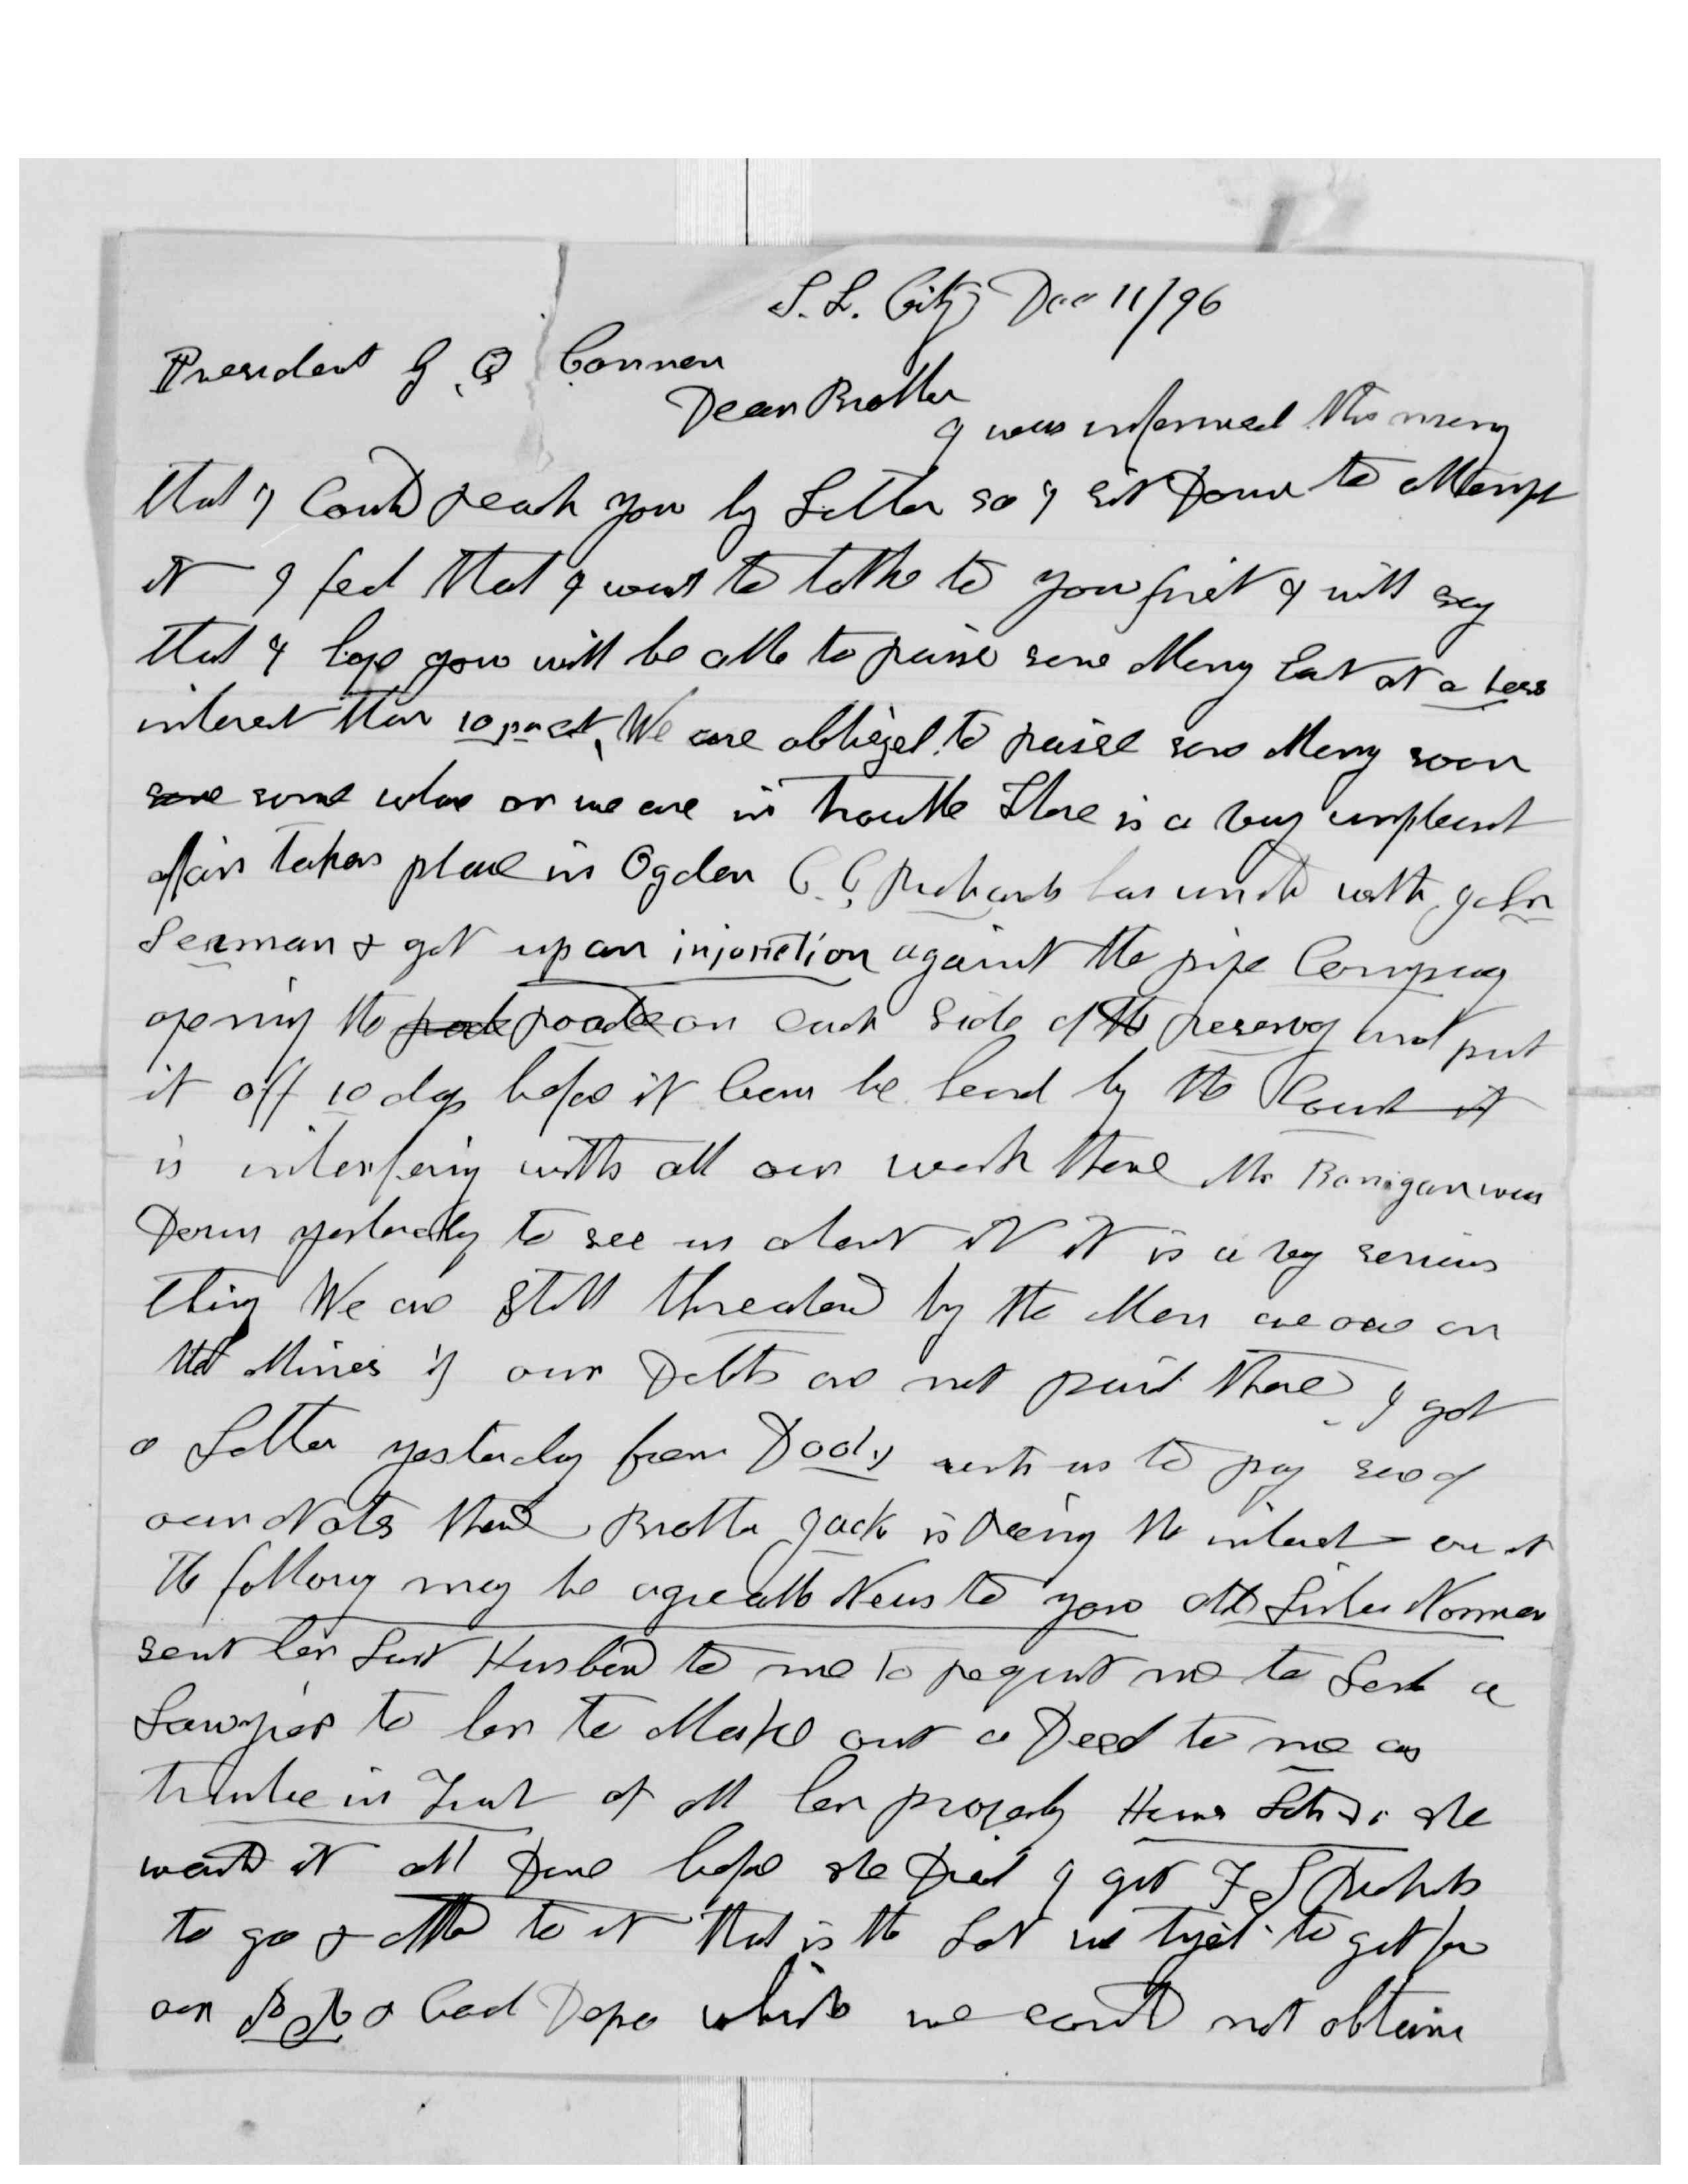 S. L. City Dec 11/96
President G. Q Cannon
Dear Brother
I was informed this morng
that I Could reach you by Letter so I sit Down to attempt
it I feel that I want to talk to you first I will say
that I hope you will be able to raise some Money East at a Less
interest than 10 pr ct, We are obliged to raise some Money soon
some some whare or we are in trouble There is a vary unpleasant
affair taken place in Ogden C. C. Richards has united with John
Seaman & got up an injonction against the pipe Company
opening the road roads on each side of the reservoy and put
it off 10 days before it Can be heard by the Court it
is interfering with all our work there Mr Banigan was
Down yesterday to see us about it it is a vary serious
thing We are still threatend by the Men we owe on
the Mines if our Debts are not paid there I got
a Letter yesterday from Dooly wish us to pay some of
our Notes there Brother Jack is Drawing the interest on it
The following may be agreeable News to you Old Sister Norman
sent her Last Husband to me to request me to Send a
Lawyier to her to Make out a Deed to me as
trustee in Trust of all her property Home Lots &c she
wanted it all Done before she Died I got F S Richards
to go & attend to it that is the Lot we tryed to get for
our R R & Coal Depo which we could not obtain